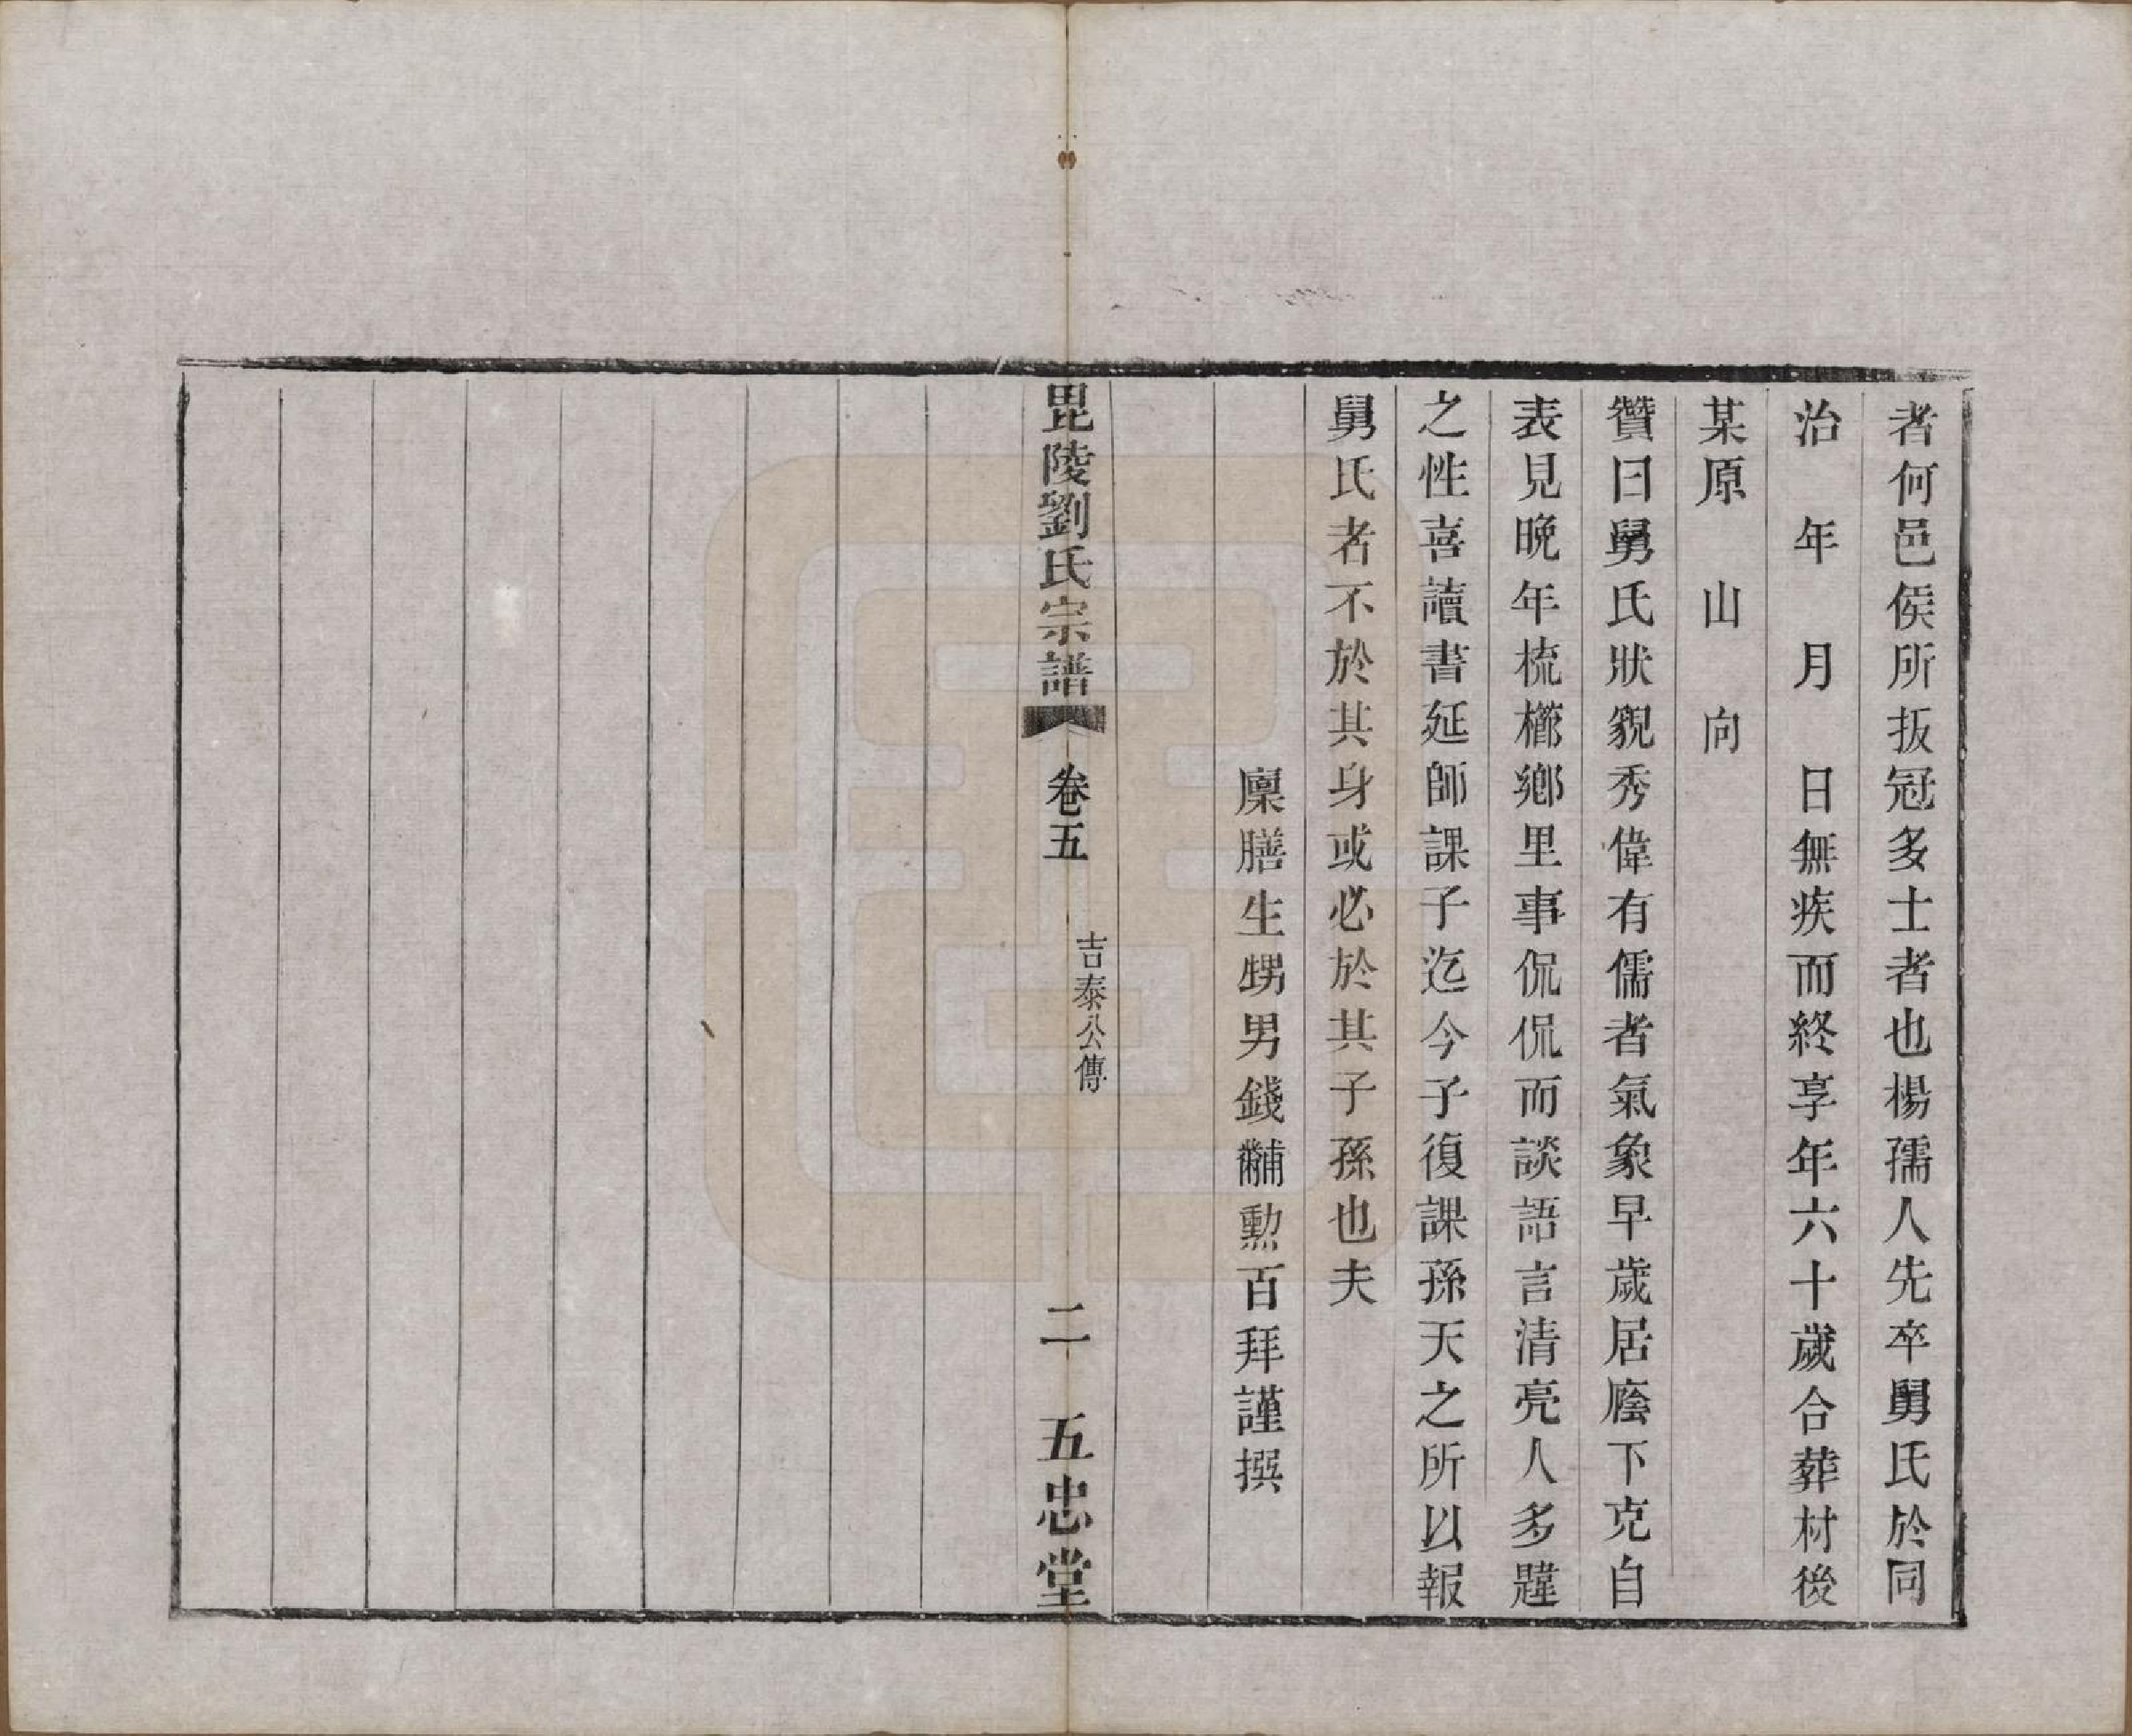 者何邑侯所扳冠多士者也楊孺人先卒舅氏於同
治　年　月　日無疾而終享年六十歲合葬村後
某原　山　向
贊曰舅氏狀貌秀偉有儒者氣象早歲居廕下克自
表見晚年梳櫛鄉里事侃侃而談語言清亮人多韙
之性喜讀書延師課子迄今子復課孫天之所以報
舅氏者不於其身或必於其子孫也夫
廩膳生甥男錢黼勳百拜謹撰
毘陵劉氏宗譜　卷五　吉泰公傳　二　五忠堂